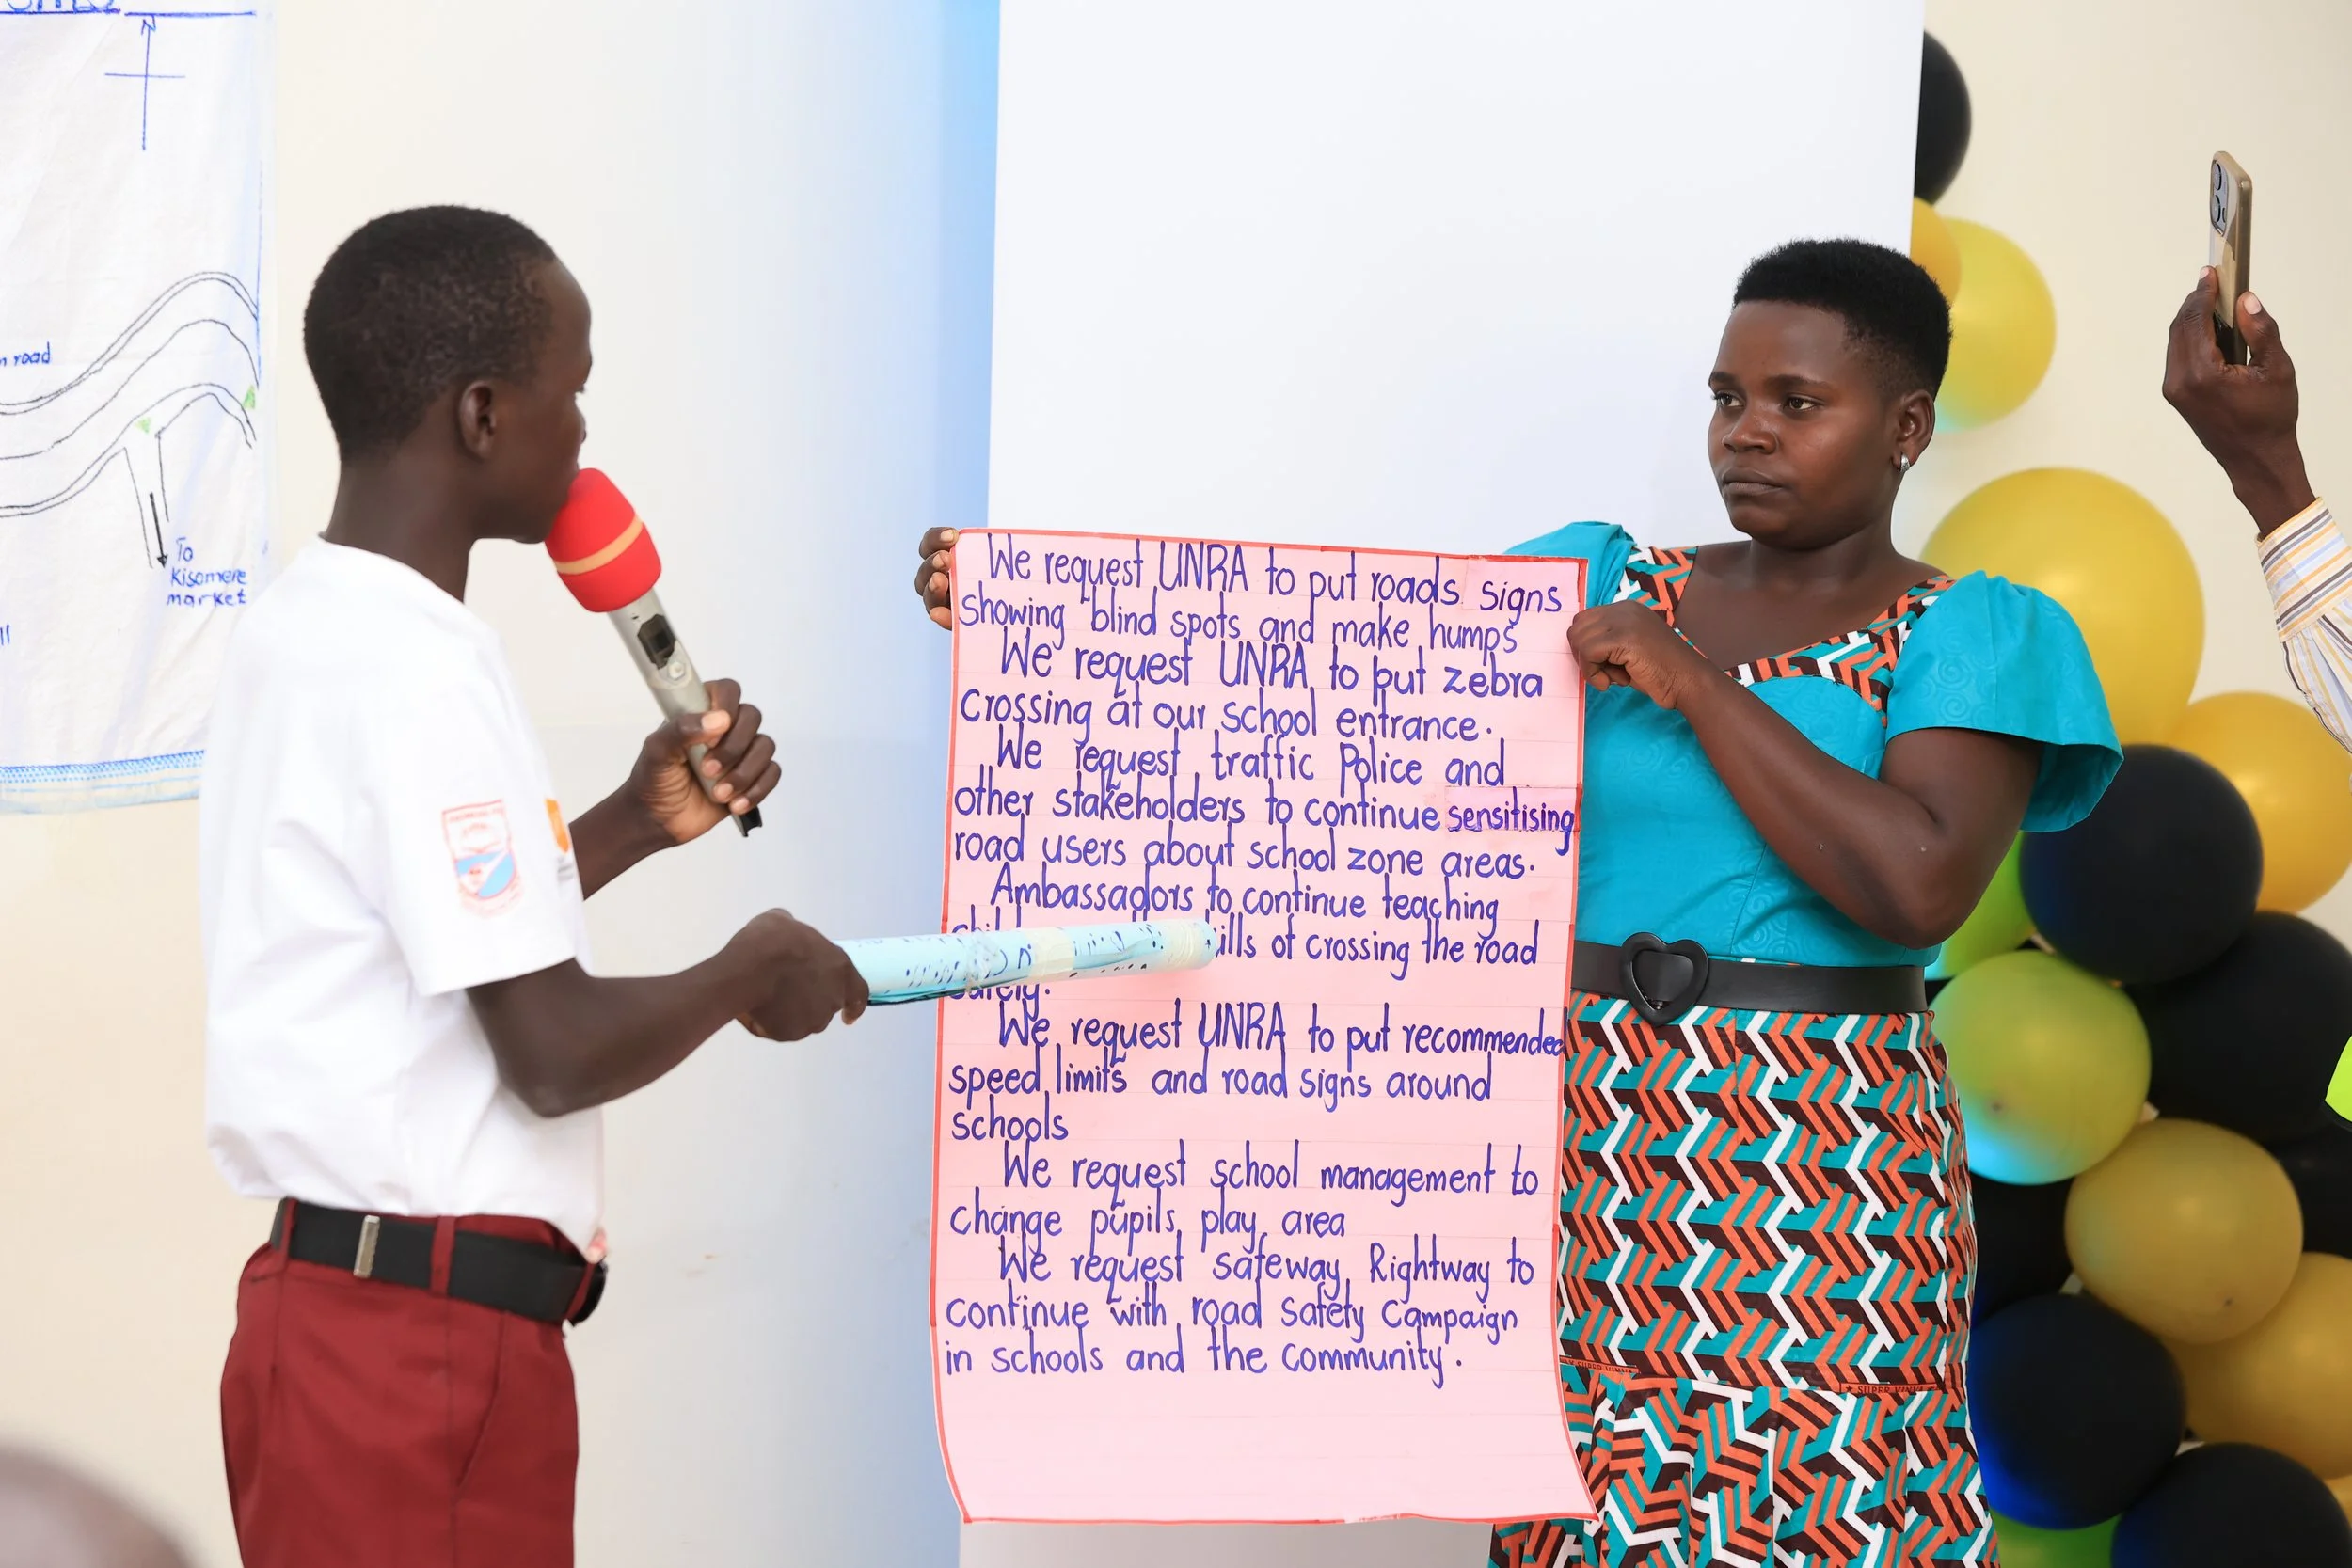 n road
To
Kisomere
market
We request UNRA to put roads signs
showing blind spots and make humps
We request UNRA to put zebra
crossing at our school entrance.
We request traffic Police and
other stakeholders to continue sensitising
road users about school zone areas.
Ambassadors to continue teaching
of crossing the road
safely.
We request UNRA to put recommended
speed limits and road signs around
schools
We request school management to
change pupils play area
We request safeway Rightway to
continue with road safety Campaign
in schools and the community.
★ SUPER